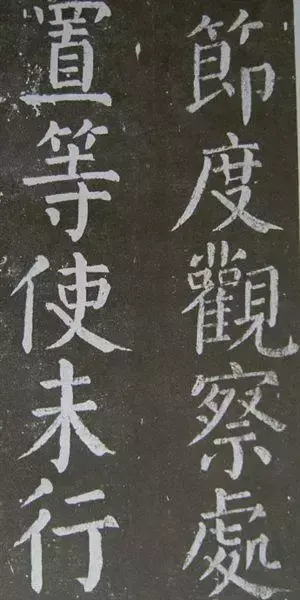 節度觀察處
置等使未行